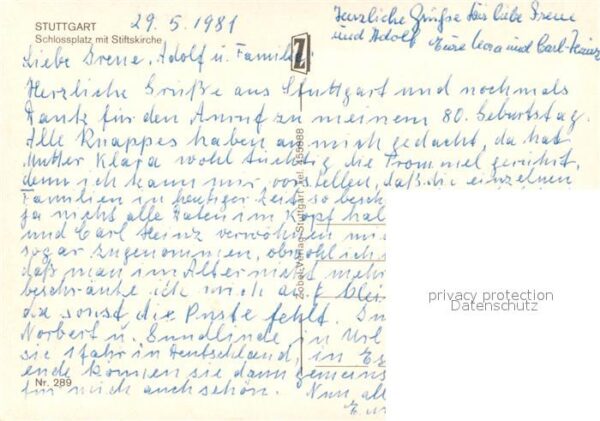 STUTTGART
Schlossplatz mit Stiftskirche
29.5.1981
Herzliche Grüße für liebe Irene
und Adolf Eure Leora und Carl-Heinz
Liebe Irene, Adolf u. Familie.
Herzliche Grüße aus Stuttgart und nochmals
Dank für den Anruf zu meinem 80. Geburtstag.
Alle Knappes haben an mich gedacht, da hat
Mutter Klara wohl tüchtig die Trommel gerührt,
denn ich kann mir vorstellen, daß die einzelnen
Familien in heutiger Zeit so besch
ja nicht alle Daten im Kopf hal
und Carl Heinz verwöhnen mi
sogar zugenommen, obwohl ich
daß man im Alter nicht mehr
beschränke ich mich auf klei
da sonst die Puste fehlt. In
Norbert u. Gundlinde in Url
sie 1 Jahr in Deutschland, in
ende können sie dann gemeins
für mich auch schön. Nun, all
Zobel-Verlag Stuttgart Tel. 455888
privacy protection
Datenschutz
Nr. 289